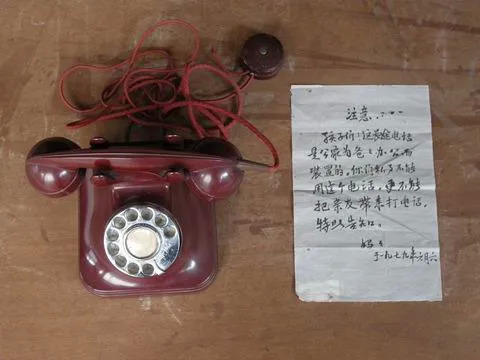 注意……
孩子们：这长途电话
是公家为爸爸办公而
装置的，你们私事不能
用这个电话，更不能
把亲友带来打电话，
特此告知。
妈妈
于一九七九年六月六